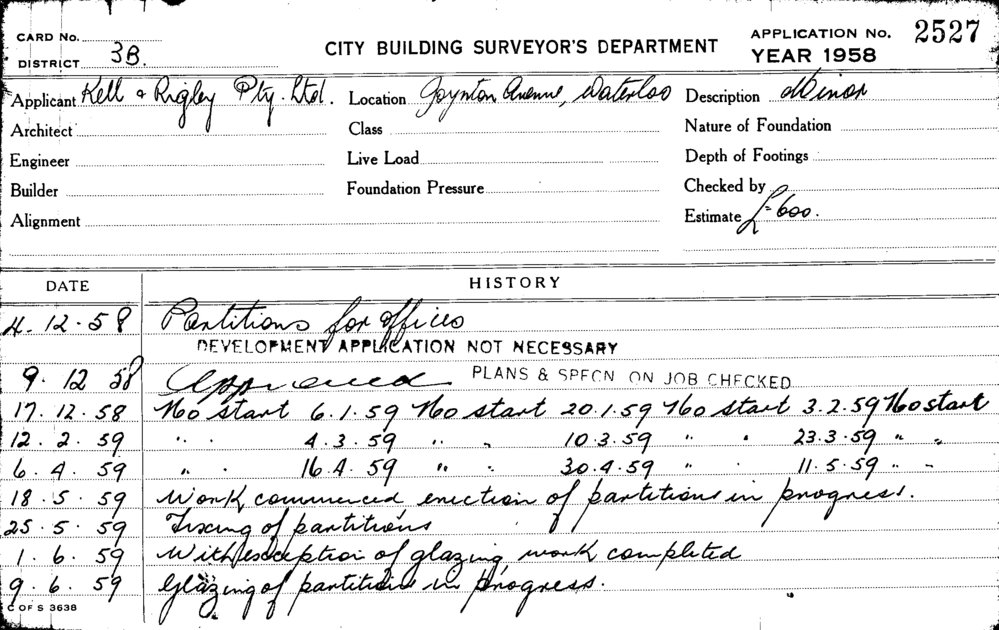 CARD No. CITY BUILDING SURVEYOR'S DEPARTMENT APPLICATION No. 2527
DISTRICT 3B. YEAR 1958
Applicant Kell & Rigley Pty. Ltd. Location Joynton Avenue, Waterloo Description Minor
Architect Class Nature of Foundation
Engineer Live Load Depth of Footings
Builder Foundation Pressure Checked by
Alignment Estimate £600.
DATE HISTORY
4.12.58 Partitions for offices
DEVELOPMENT APPLICATION NOT NECESSARY
9.12 58 Approved PLANS & SPECN ON JOB CHECKED
17.12.58 No start 6.1.59 No start 20.1.59 No start 3.2.59 No start
12.2.59 " " 4.3.59 " " 10.3.59 " " 23.3.59 " "
6.4.59 " " 16.4.59 " " 30.4.59 " " 11.5.59 " "
18.5.59 Work commenced erection of partitions in progress.
25.5.59 Fixing of partitions
1.6.59 With exception of glazing, work completed
9.6.59 Glazing of partitions in progress.
C OF S 3638